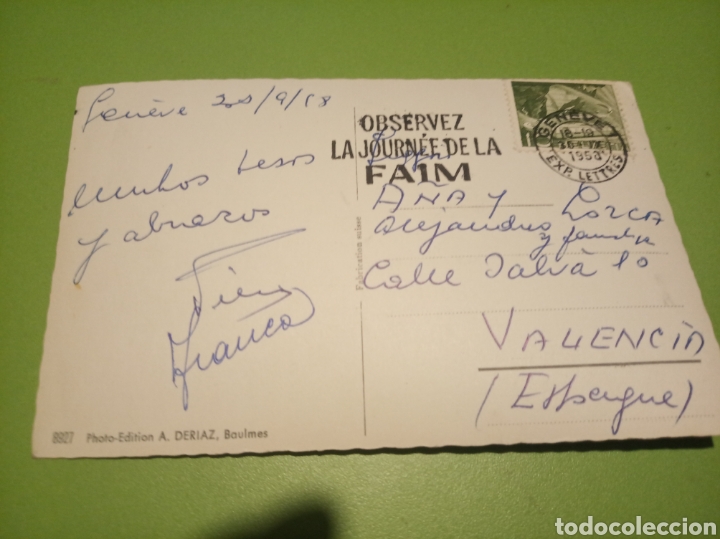 Genève 20/9/58
muchos besos
y abrazos
Franca
8827 Photo-Edition A. DERIAZ, Baulmes
Fabrication suisse
OBSERVEZ
LA JOURNÉE DE LA
FAIM
GENÈVE 1
18-19
1958
EXP. LETTRES
ANA Y LORCA
Alejandro y familia
Calle Salvá 10
VALENCIA
(Espagne)
todocoleccion